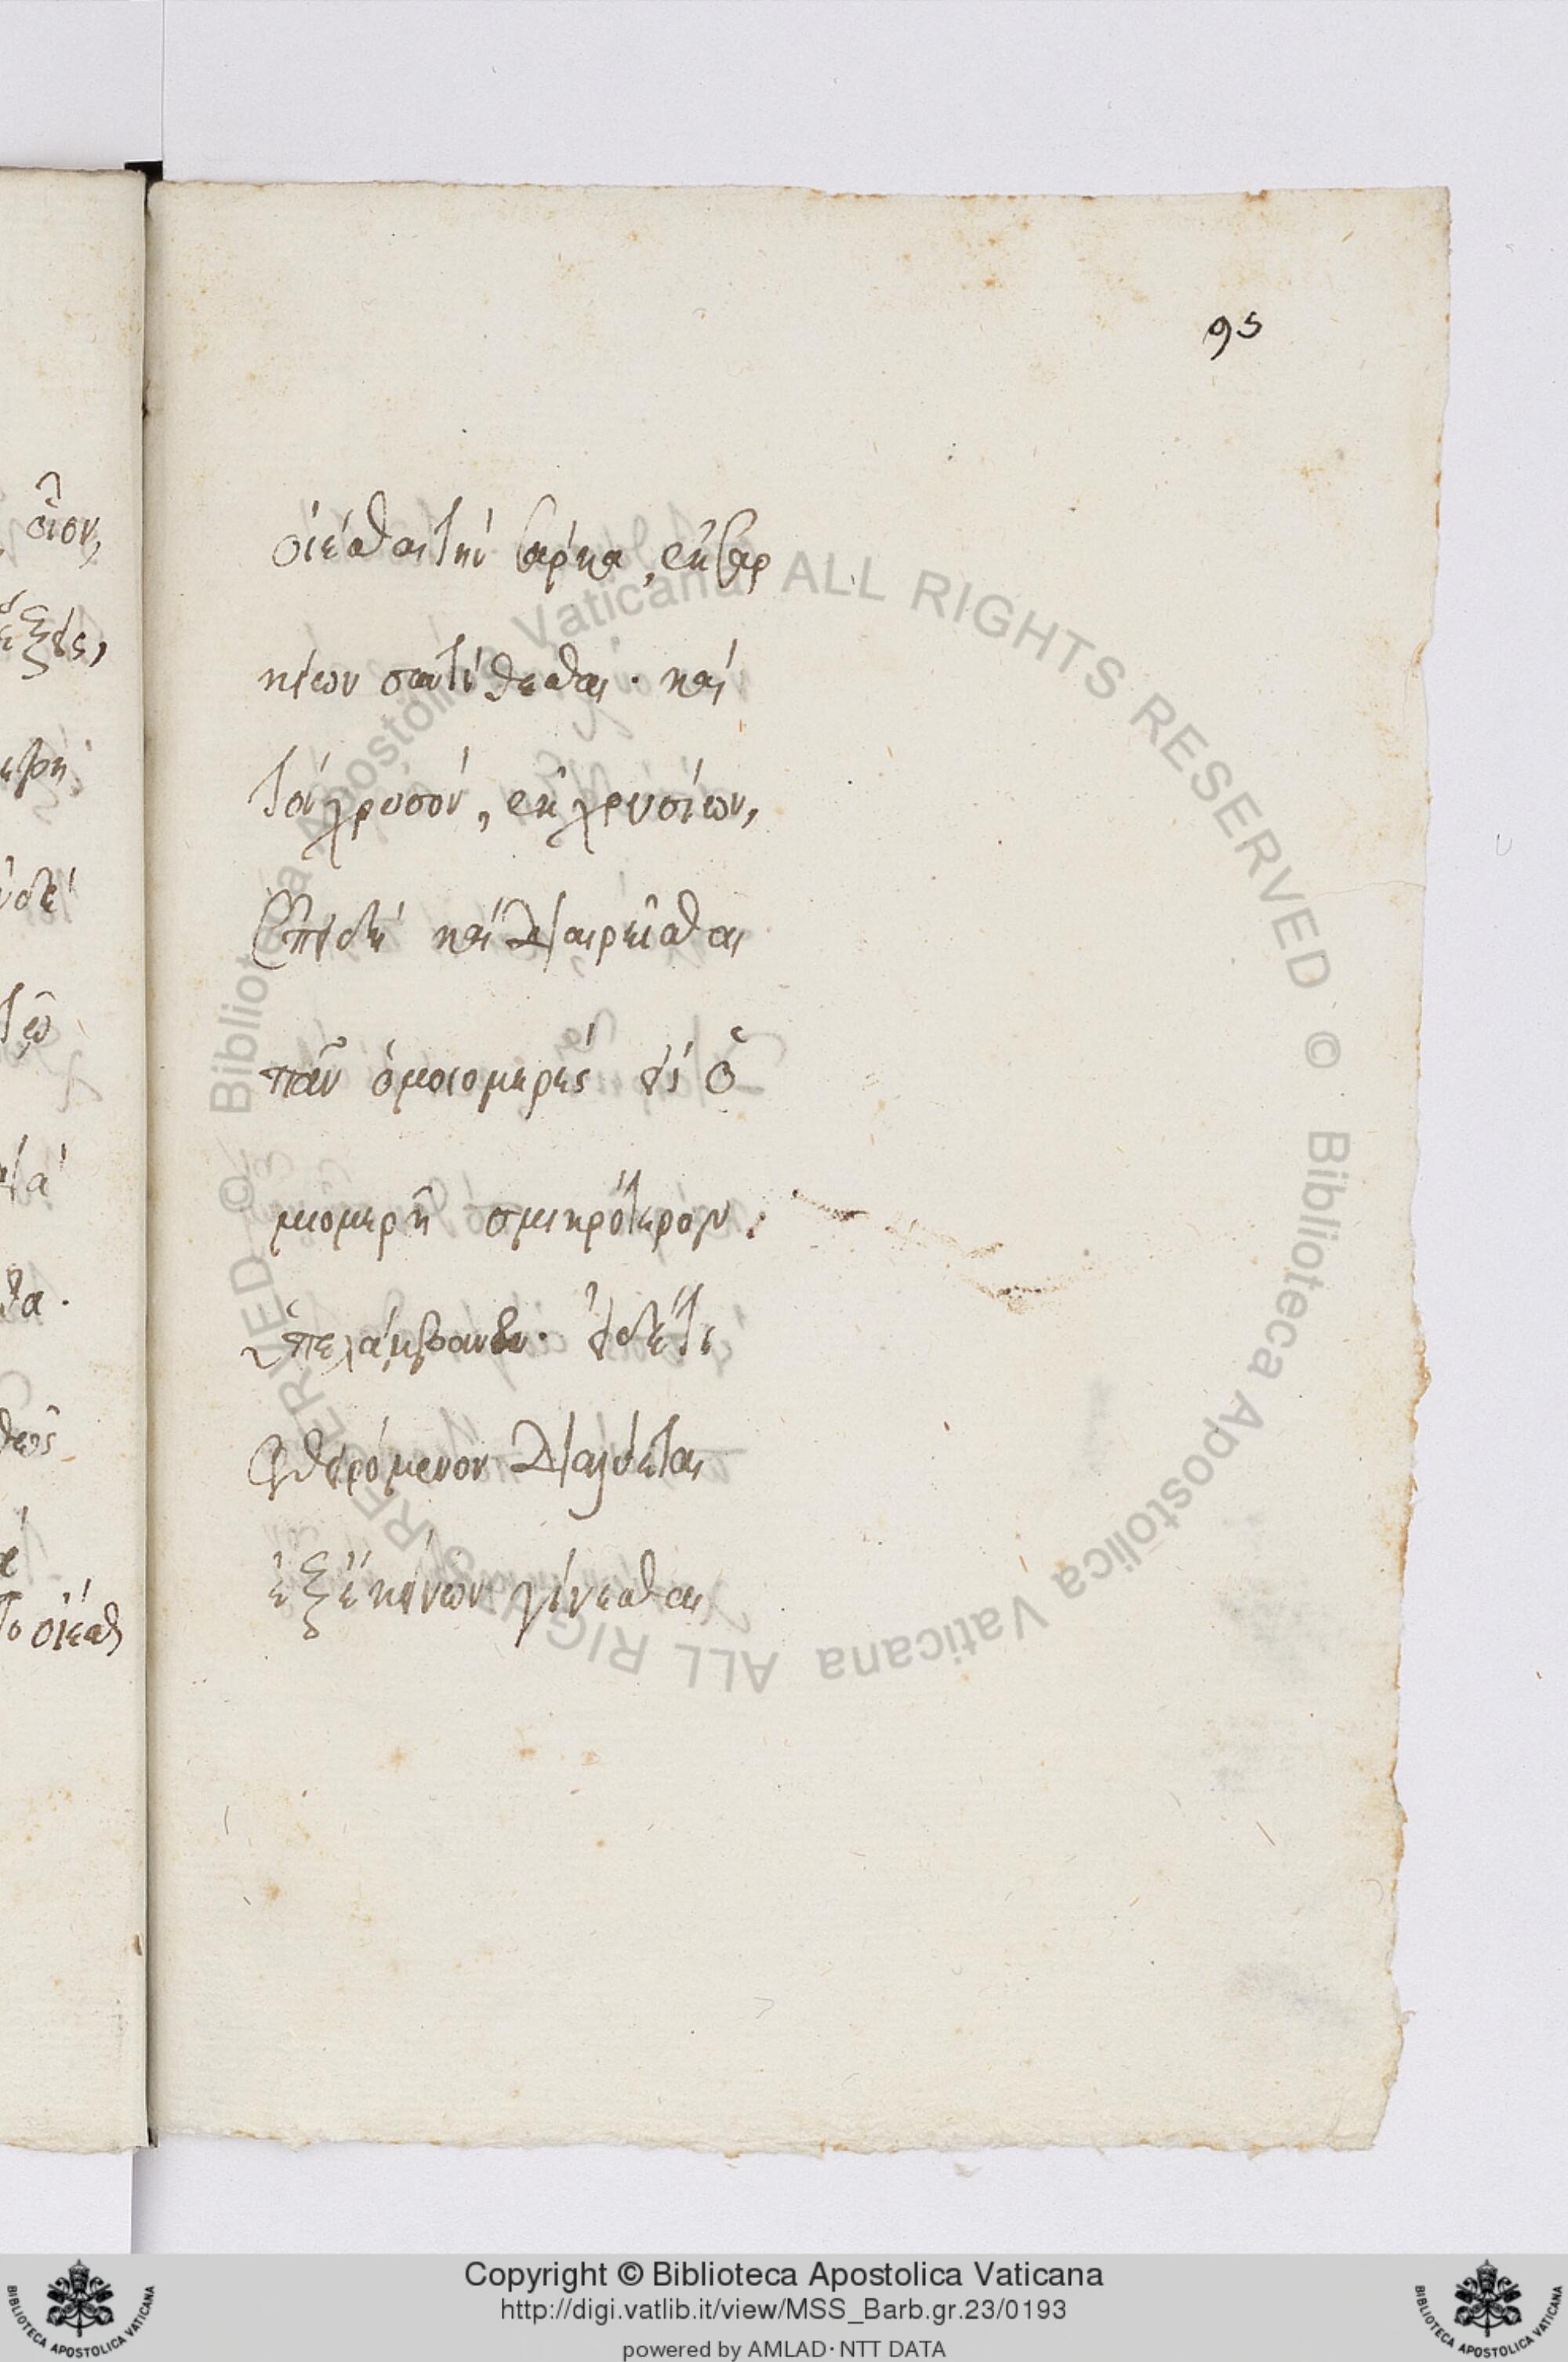 95
οἴεσθαι τὴν σάρκα, ἐκ σαρ
κίων συντίθεσθαι· καὶ
τὸν χρυσὸν, ἐκ χρυσίων,
ἐπειδὴ καὶ διαιρεῖσθαι
πᾶν ὁμοιομερὲς εἰς ὁ
μοιομερῆ σμικρότερον
ὑπελάμβανεν· εἰ δέ τι
φθειρόμενον διαλύεται
ἐξ ἐκείνων γίνεσθαι
οἷον,
τῶ
οἴεσθ
Copyright © Biblioteca Apostolica Vaticana
http://digi.vatlib.it/view/MSS_Barb.gr.23/0193
powered by AMLAD · NTT DATA
© Biblioteca Apostolica Vaticana ALL RIGHTS RESERVED © Biblioteca Apostolica Vaticana ALL RIGHTS RESERVED
BIBLIOTECA APOSTOLICA VATICANA
BIBLIOTECA APOSTOLICA VATICANA